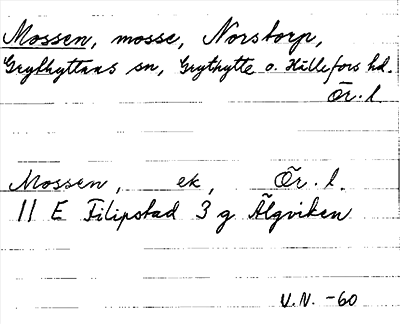 Mossen, mosse, Norstorp,
Grythyttans sn, Grythytte o. Hällefors hd.
Ör. l.
Mossen, ek, Ör. l.
11 E Filipstad 3 g Älgviken
V.N. -60